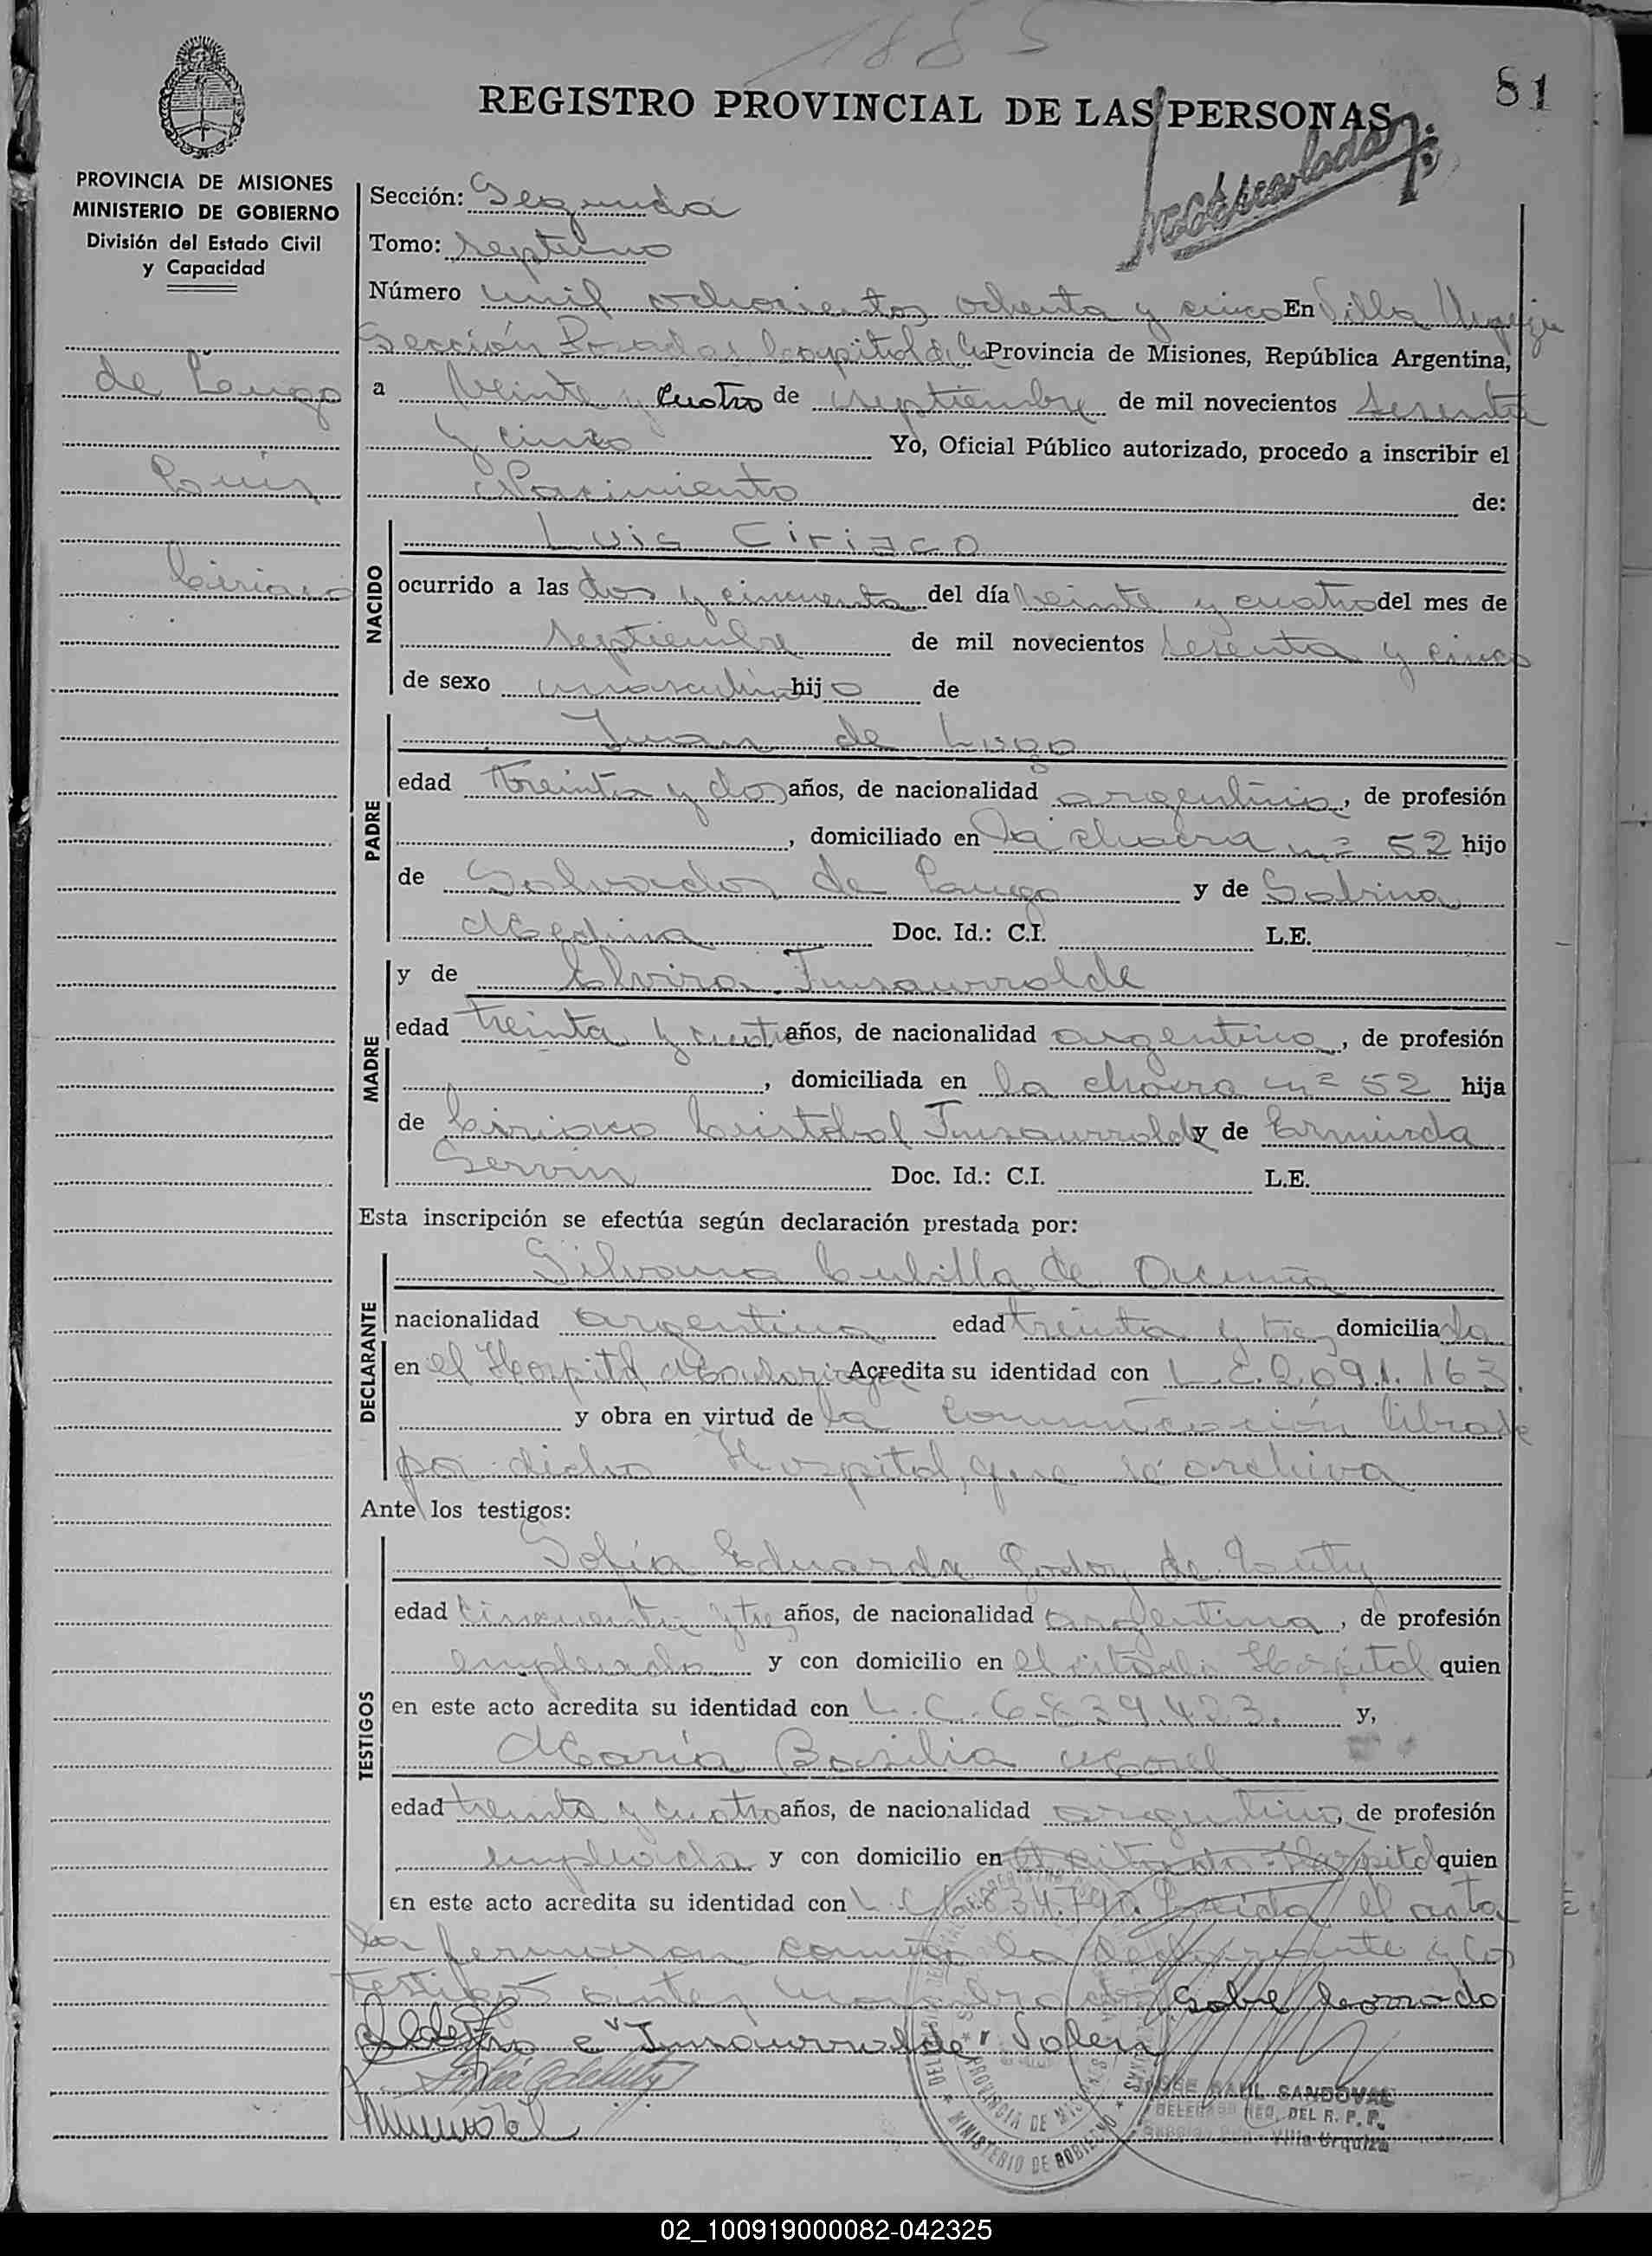 1885
81
REGISTRO PROVINCIAL DE LAS PERSONAS
PROVINCIA DE MISIONES
MINISTERIO DE GOBIERNO
División del Estado Civil
y Capacidad
de Lugo
Luis
Ciriaco
Sección: Segunda
Tomo: septimo
Número mil ochocientos ochenta y cinco En Villa Urquiza
Sección Posadas Provincia de Misiones, República Argentina,
a veinte y cuatro de septiembre de mil novecientos sesenta
y cinco Yo, Oficial Público autorizado, procedo a inscribir el
Nacimiento de:
NACIDO
Luis Ciriaco
ocurrido a las dos y cincuenta del día veinte y cuatro del mes de
septiembre de mil novecientos sesenta y cinco
de sexo masculino hijo de
PADRE
Juan de Lugo
edad treinta y dos años, de nacionalidad argentino, de profesión
, domiciliado en la chacra nº 52 hijo
de Salvador de Lugo y de Sabina
Medina Doc. Id.: C.I. L.E.
MADRE
y de Elvira Insaurralde
edad treinta y cuatro años, de nacionalidad argentina, de profesión
, domiciliada en la chacra nº 52 hija
de Ciriaco Cristobal Insaurralde y de Erminda
Servin Doc. Id.: C.I. L.E.
Esta inscripción se efectúa según declaración prestada por:
DECLARANTE
Silvana Cubilla de Acuña
nacionalidad argentina edad treinta y tres domiciliada
en el Hospital Acredita su identidad con
y obra en virtud de la comunicación librada
por dicho Hospital, que se archiva
Ante los testigos:
TESTIGOS
Sofia Eduarda Godoy de
edad cincuenta y tres años, de nacionalidad argentina, de profesión
empleada y con domicilio en el citado Hospital quien
en este acto acredita su identidad con L.C. 6.839.423. y,
Maria Basilia Morel
edad treinta y cuatro años, de nacionalidad argentina, de profesión
empleada y con domicilio en el citado Hospital quien
en este acto acredita su identidad con L.C. Leida el acta
la firmaron conmigo la declarante y los
testigos sobre borrado
cuatro e "Insaurralde" Valen
JOSE RAUL SANDOVAL
DELEGADO REG. DEL R. P. P.
Villa Urquiza
PROVINCIA DE MISIONES
MINISTERIO DE GOBIERNO
02_100919000082-042325